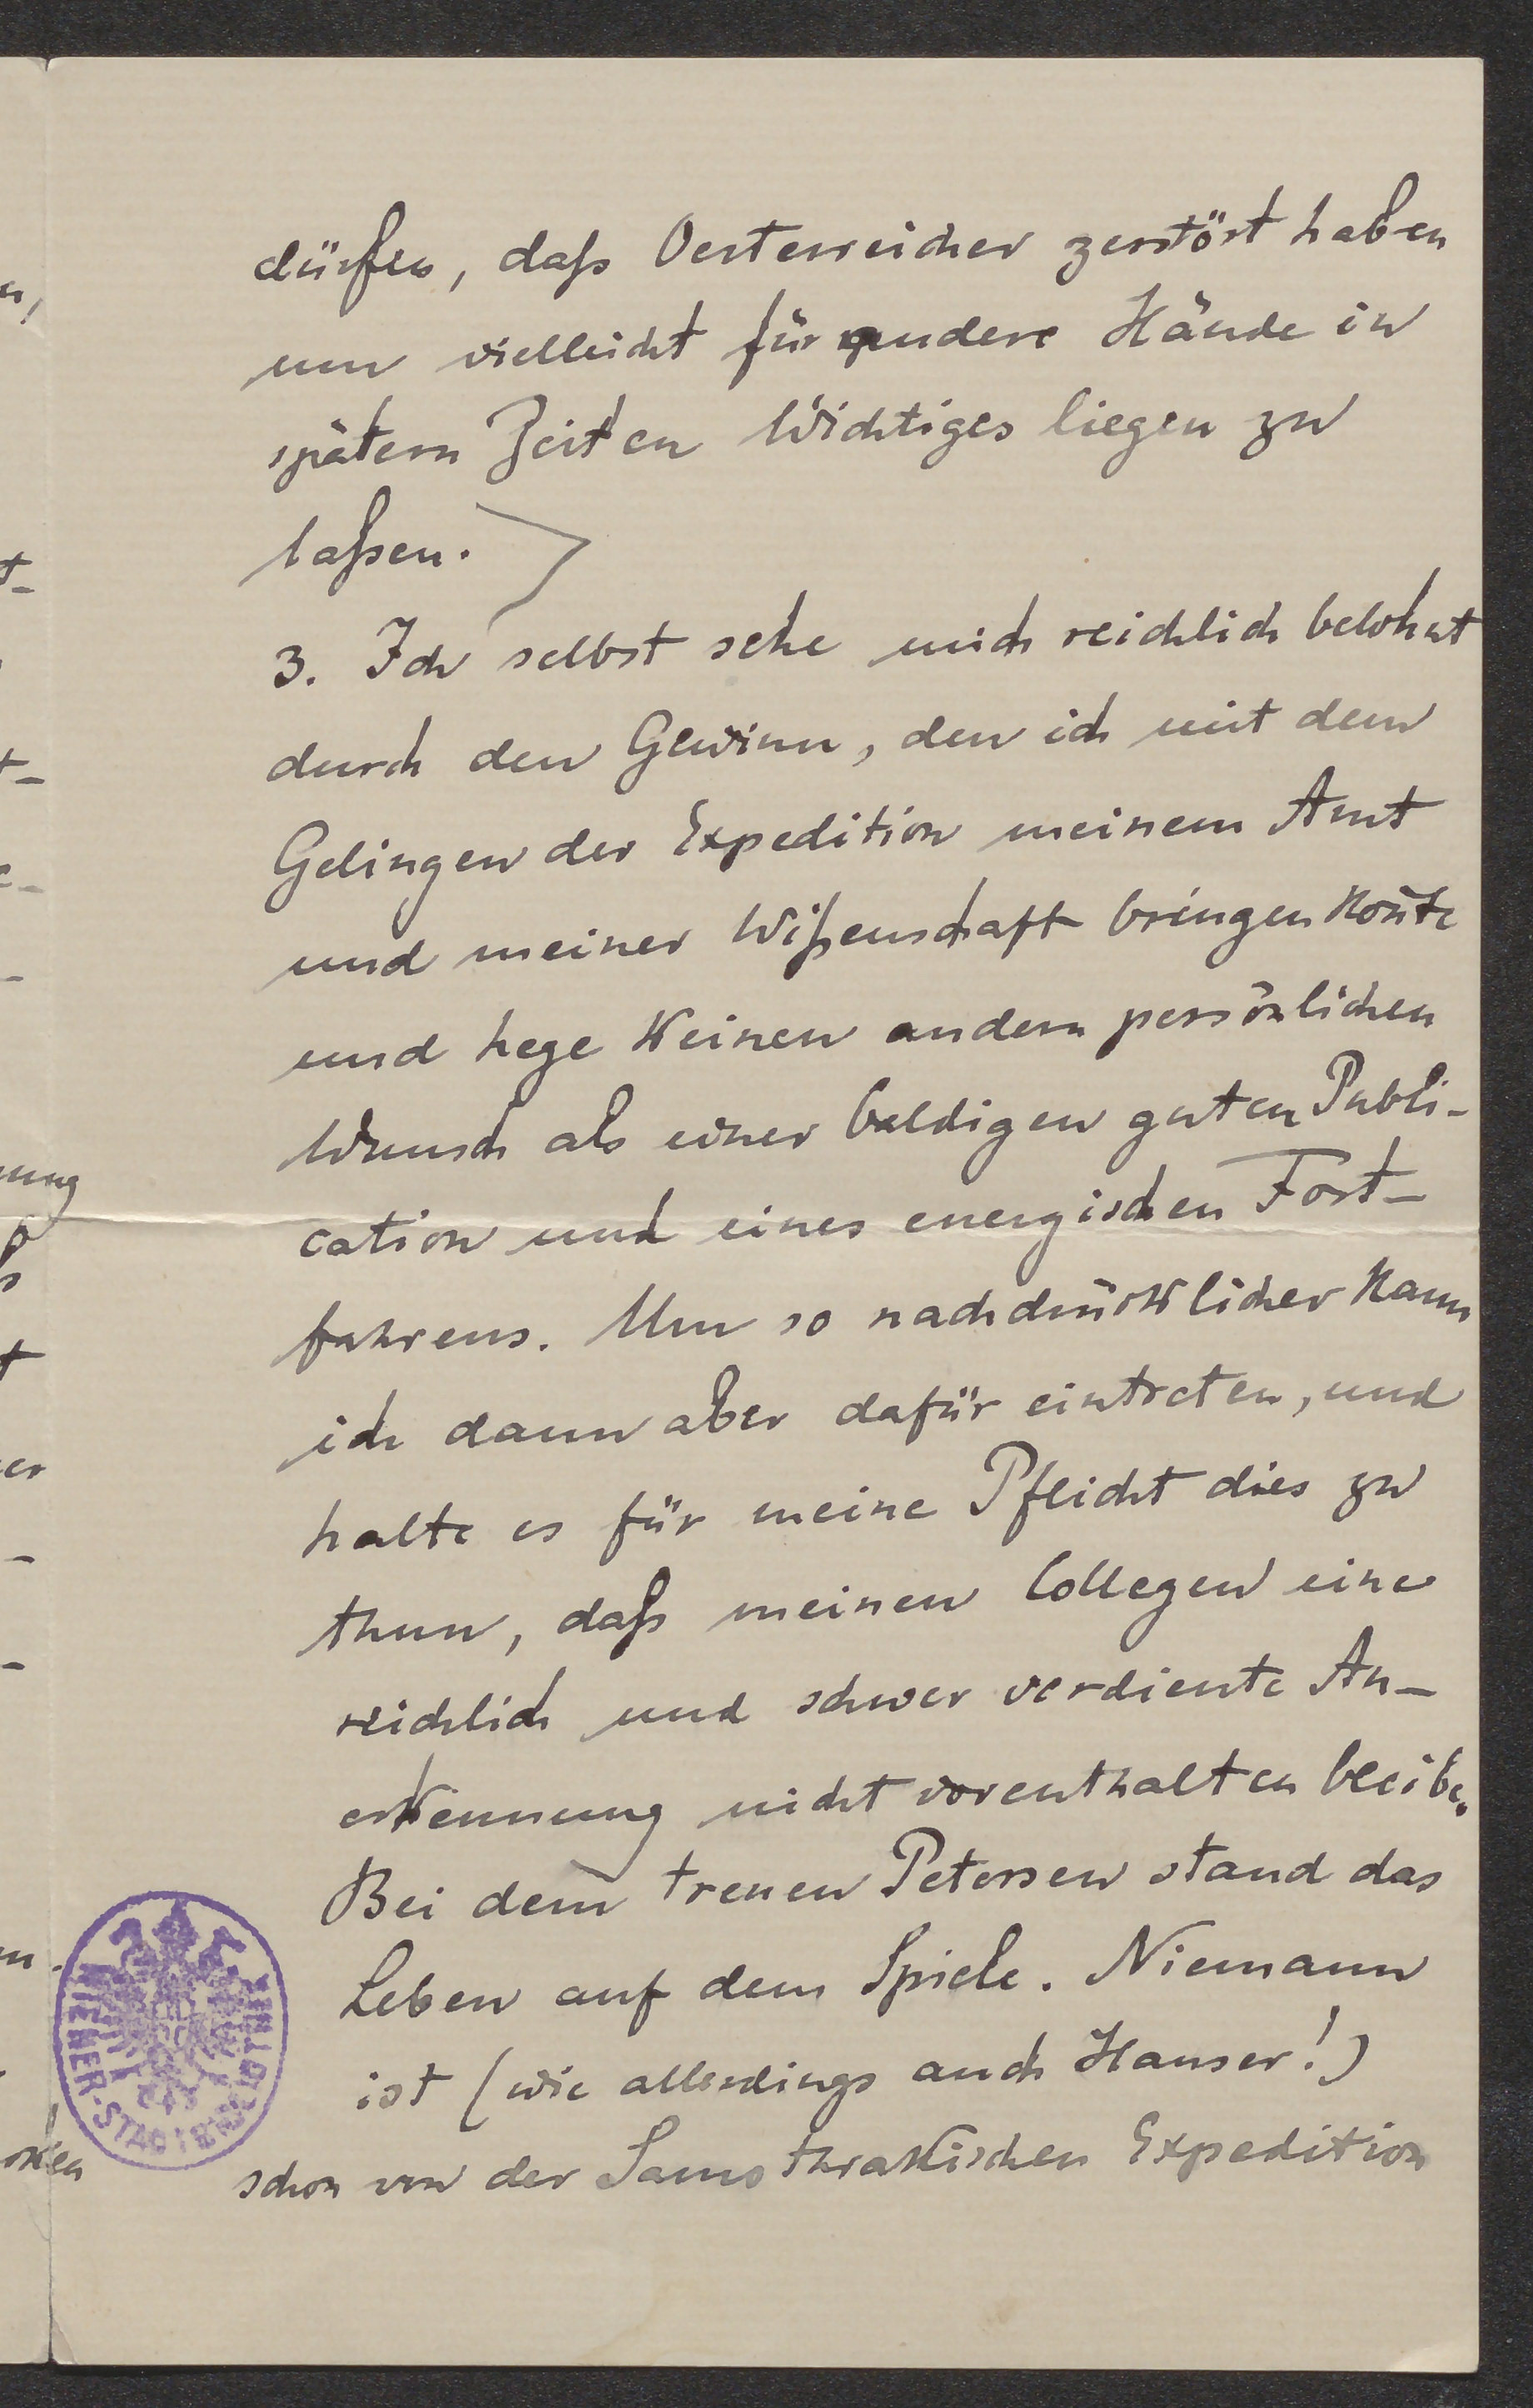 dürfen, daß Oesterreicher zerstört haben
um vielleicht für andere Hände in
spätern Zeiten Wichtiges liegen zu
laßen.
3. Ich selbst sehe mich reichlich belohnt
durch den Gewinn, den ich mit dem
Gelingen der Expedition meinem Amt
und meiner Wißenschaft bringen kon̄te
und hege keinen andern persönlichen
Wunsch als einer baldigen guten Publi-
cation und eines energischen Fort-
fahrens. Um so nachdrücklicher kann
ich dann aber dafür eintreten, und
halte es für meine Pflicht dies zu
thun, daß meinen Collegen eine
reichlich und schwer verdiente An-
erkennung nicht vorenthalten bleibe.
Bei dem treuen Petersen stand das
Leben auf dem Spiele. Niemann
ist (wie allerdings auch Hauser!)
schon von der Samothrakischen Expedition
WIENER-STADTBIBLIOTHEK